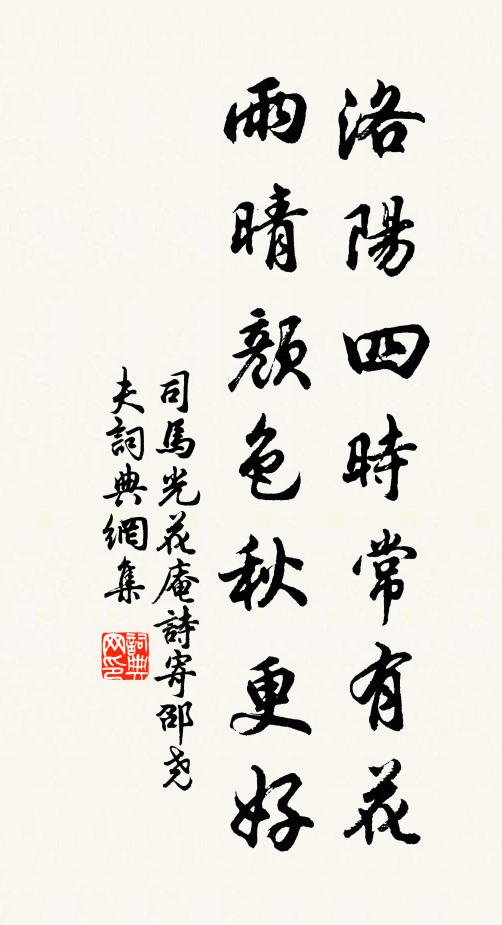 洛陽四時常有花
雨晴顏色秋更好
司馬光花庵詩寄邵堯
夫詞典網集
詞典
网印